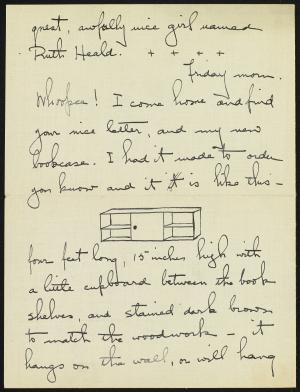 guest, awfully nice girl named
Ruth Heald. + + + +
Friday morn.
Whoopee! I come home and find
your nice letter, and my new
bookcase. I had it made to order
you know and it is like this -
four feet long, 15 inches high with
a little cupboard between the book
shelves, and stained dark brown
to match the woodwork - it
hangs on the wall, or will hang